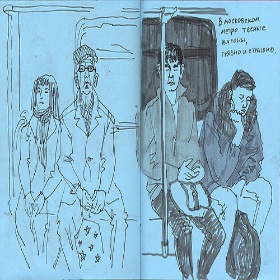 В МОСКОВСКОМ
МЕТРО ТЕМНЫЕ
ВАГОНЫ,
ГРЯЗНО И СТРАШНО.